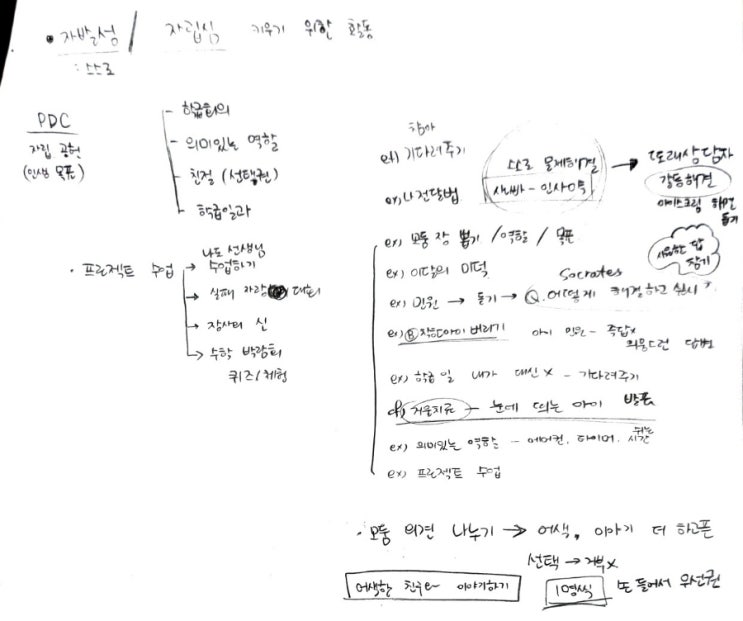 • 자발성 / 자립심 키우기 위한 활동
: 스스로
PDC
자립 공헌
(인생 목표)
- 학급회의
- 의미있는 역할
- 친절 (선택권)
- 학급일과
• 프로젝트 수업
나도 선생님
수업하기
실패 자랑 대회
장사의 신
수학 박람회
퀴즈/체험
참아
ex) 기다려주기
ex) 나전달법
스스로 문제해결
사나빠 - 인사약
→ 또래상담자
갈등해결
아이스크림 화면
돕기
시원한 답
찾기
ex) 모둠 장 뽑기 / 역할 / 목표
ex) 이달의 미덕
Socrates
ex) 민원 → 듣기 → Q. 어떻게 해결하고 싶니?
버리기 아이 민원 - 즉답x
되물드런 답변
ex) 학급 일 내가 대신 x - 기다려주기
거울치료 - 눈에 띄는 아이
ex) 의미있는 역할 - 에어컨, 타이머, 쉬는시간
ex) 프로젝트 수업
• 모둠 의견 나누기 → 어색, 이야기 더 하고픈
선택 → 거부x
어색한 친구와 이야기하기
1명씩 손 들어서 우선권